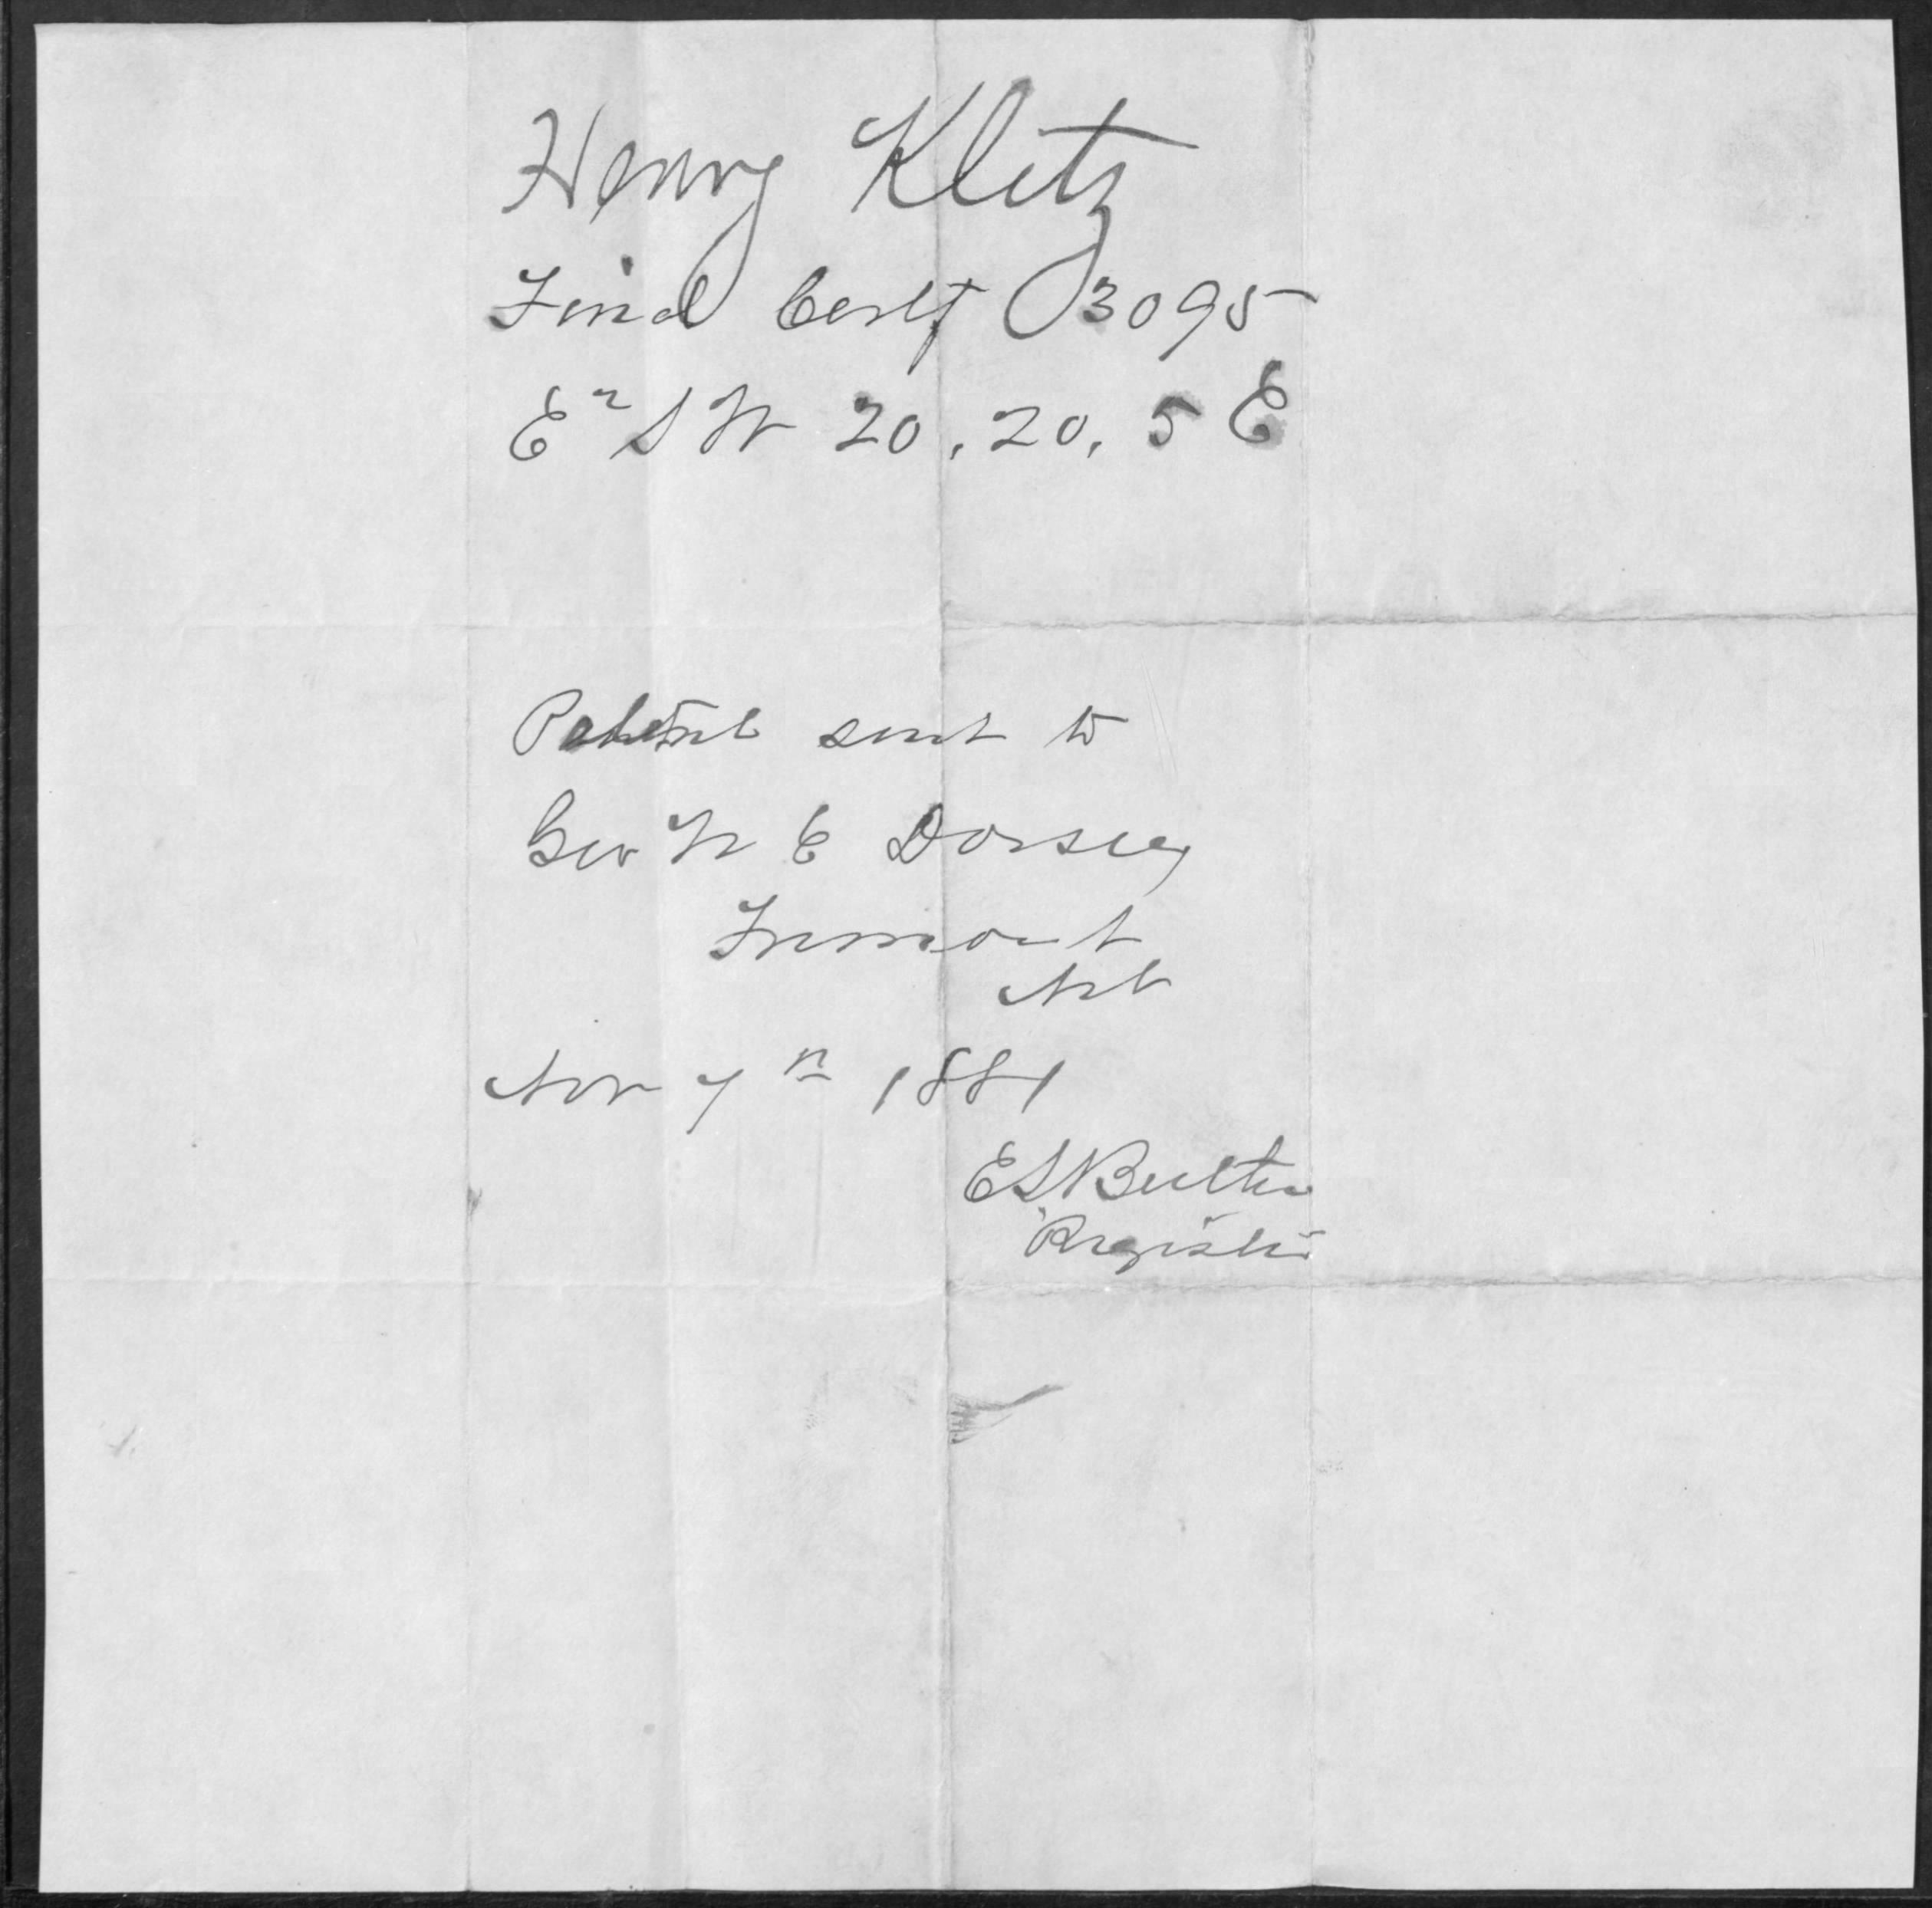 Henry Kletz
Final Certf 3095
E² SW 20, 20, 5 E
Patent sent to
Geo W E Dorsey
Fremont
Neb
Nov 7th 1881
E S Butler
Register